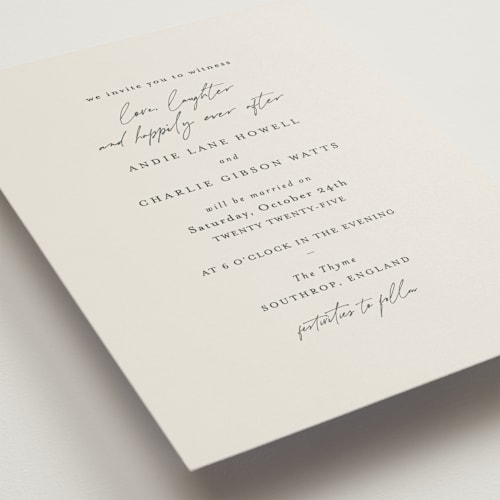 we invite you to witness
love, laughter
and happily ever after
ANDIE LANE HOWELL
and
CHARLIE GIBSON WATTS
will be married on
Saturday, October 24th
TWENTY TWENTY-FIVE
AT 6 O'CLOCK IN THE EVENING
—
The Thyme
SOUTHROP, ENGLAND
festivities to follow